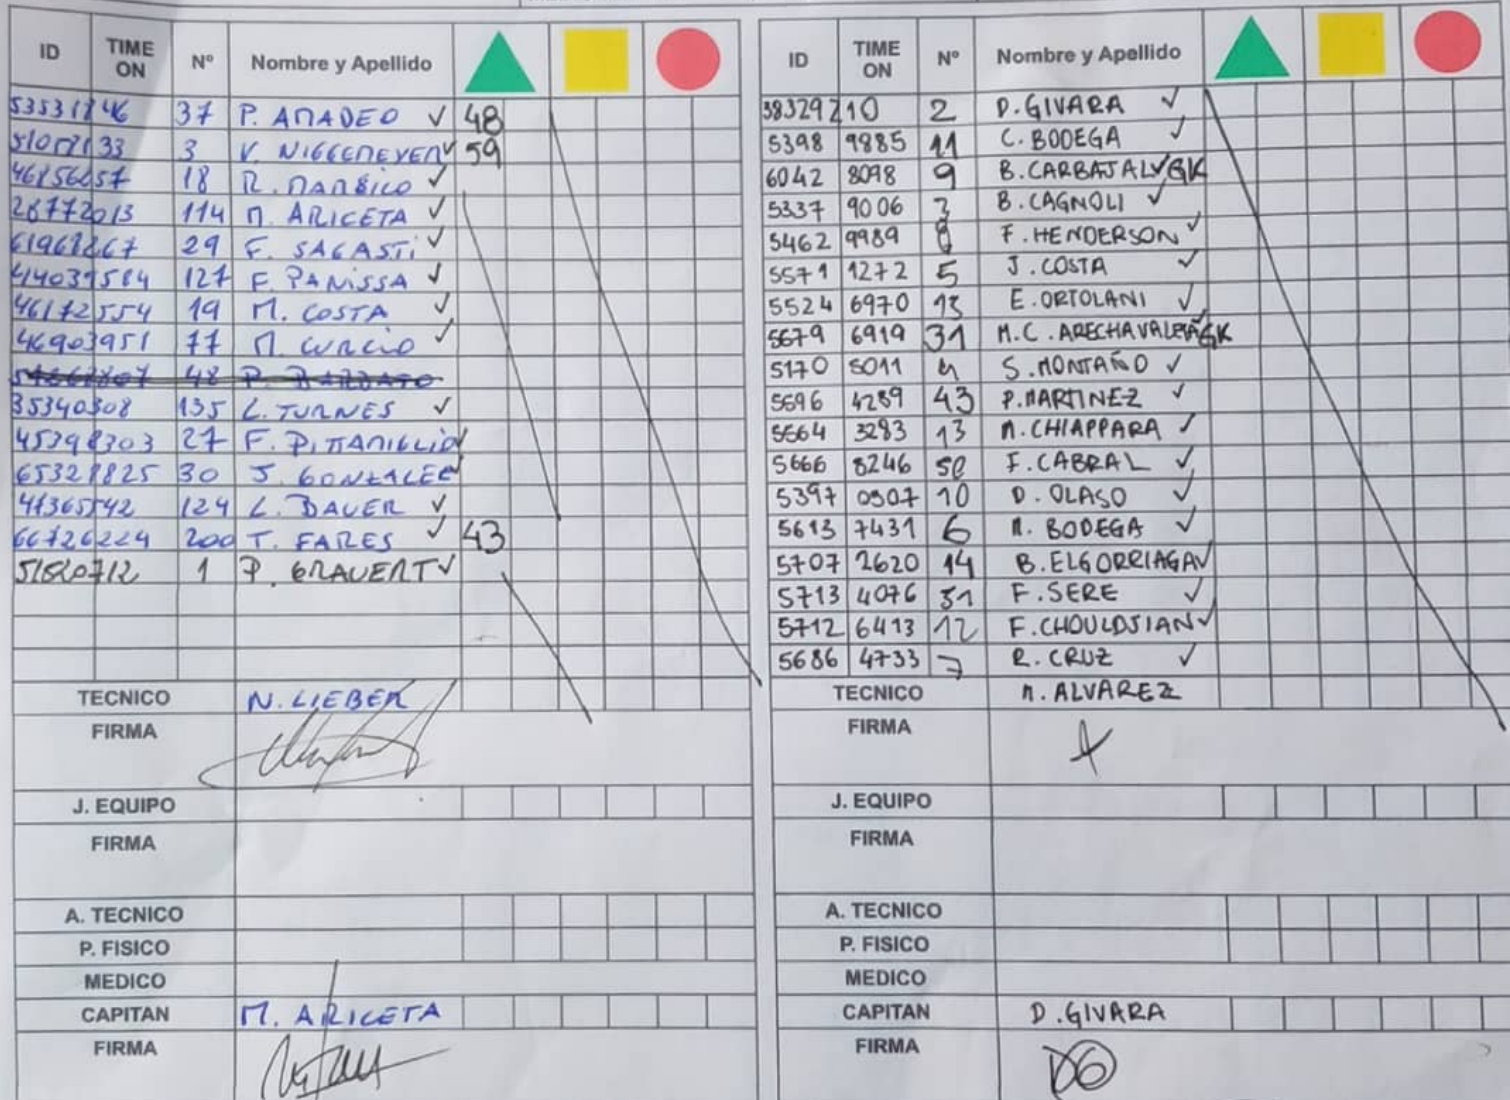 ID TIME ON Nº Nombre y Apellido
53531846 37 P. AMADEO ✓ 48
3 V. NIGGEMEYER ✓ 59
46856657 18 R. MARSICO ✓
26772013 114 M. ARICETA ✓
61968267 29 F. SAGASTI ✓
44039584 127 F. PANISSA ✓
46172554 19 M. COSTA ✓
46903951 77 M. CURCIO ✓
48 P. BARDATO
35340308 135 L. TURNES ✓
45398303 27 F. PITTAMIGLIO ✓
65328825 30 J. GONZALEZ ✓
41365542 124 L. BAUER ✓
66726224 200 T. FARES ✓ 43
51520712 1 P. GRAUERT ✓
TECNICO N. LIEBER
FIRMA
J. EQUIPO
FIRMA
A. TECNICO
P. FISICO
MEDICO
CAPITAN M. ARICETA
FIRMA
ID TIME ON Nº Nombre y Apellido
38329210 2 D. GIVARA ✓
5398 9885 11 C. BODEGA ✓
6042 8098 9 B. CARBAJAL ✓ GK
5337 9006 3 B. CAGNOLI ✓
5462 9989 8 F. HENDERSON ✓
5571 1272 5 J. COSTA ✓
5524 6970 15 E. ORTOLANI ✓
5679 6919 31 M.C. ARECHAVALETA GK
5170 5011 4 S. MONTAÑO ✓
5696 4289 43 P. MARTINEZ ✓
5564 3283 13 M. CHIAPPARA ✓
5666 8246 50 F. CABRAL ✓
5397 0507 10 D. OLASO ✓
5613 7431 6 M. BODEGA ✓
5707 2620 14 B. ELGORRIAGA ✓
5713 4076 51 F. SERE ✓
5712 6413 12 F. CHOULDJIAN ✓
5686 4733 7 R. CRUZ ✓
TECNICO M. ALVAREZ
FIRMA
J. EQUIPO
FIRMA
A. TECNICO
P. FISICO
MEDICO
CAPITAN D. GIVARA
FIRMA DG